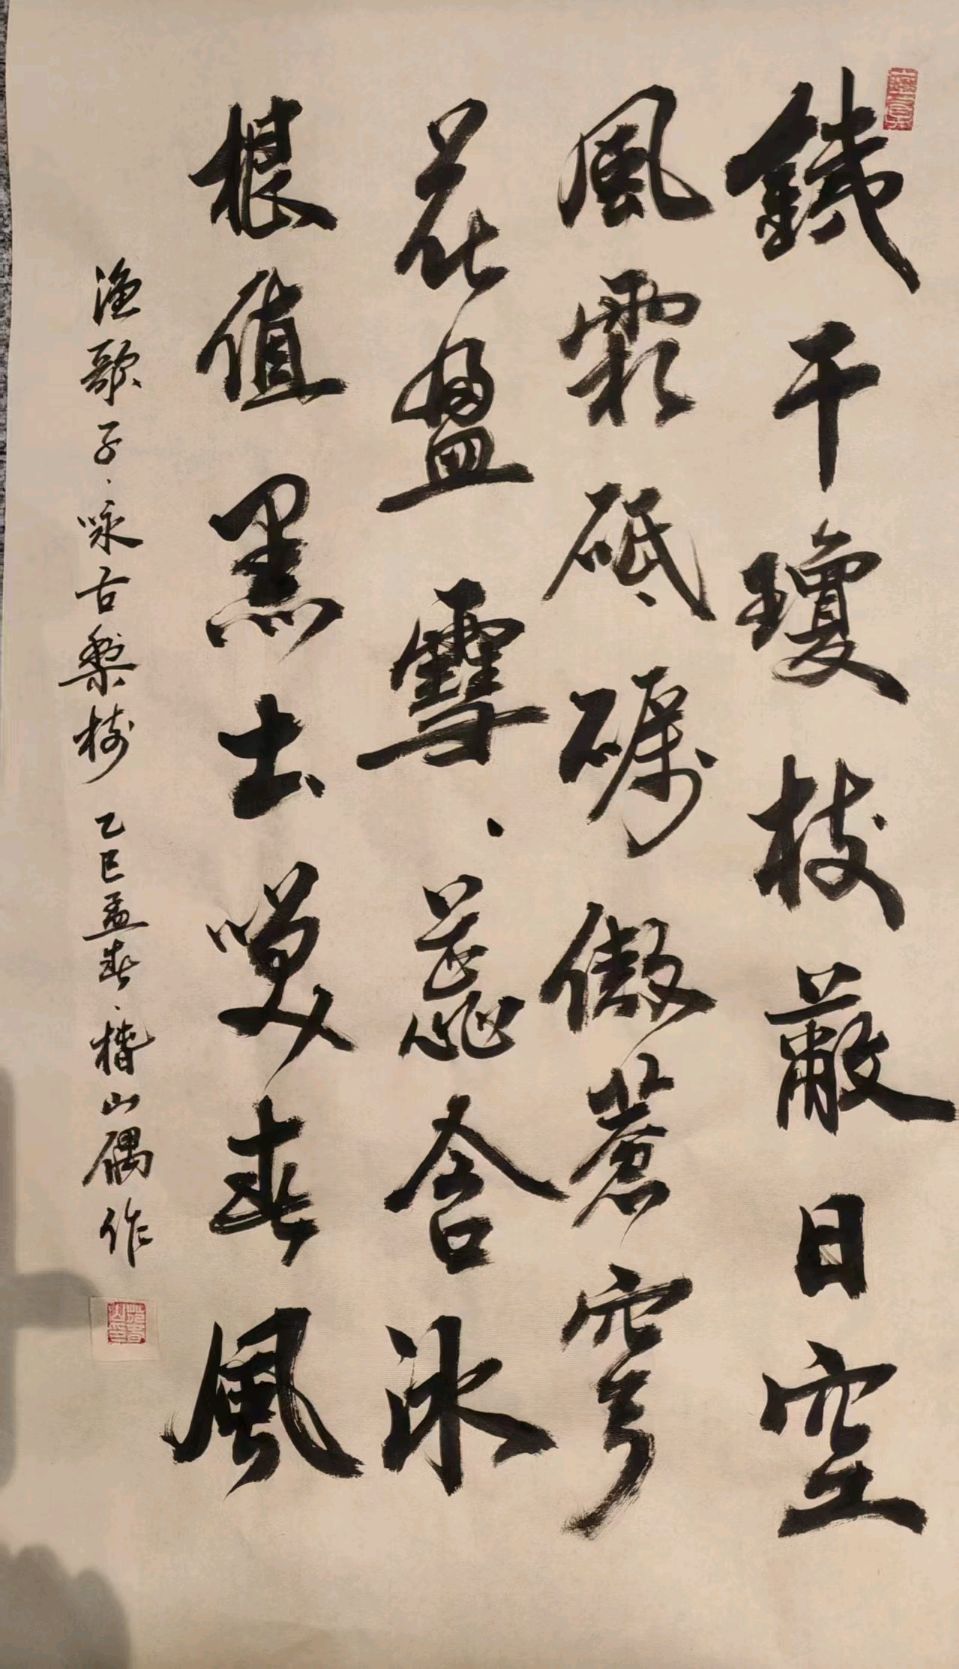 鐵干瓊枝蔽日空
風霜砥礪傲蒼穹
花盈雪、蕊含冰
根值黑土笑春風
渔歌子、咏古梨树 乙巳孟春、稽山偶作